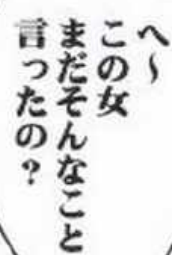 へ～
この女
まだそんなこと
言ったの？